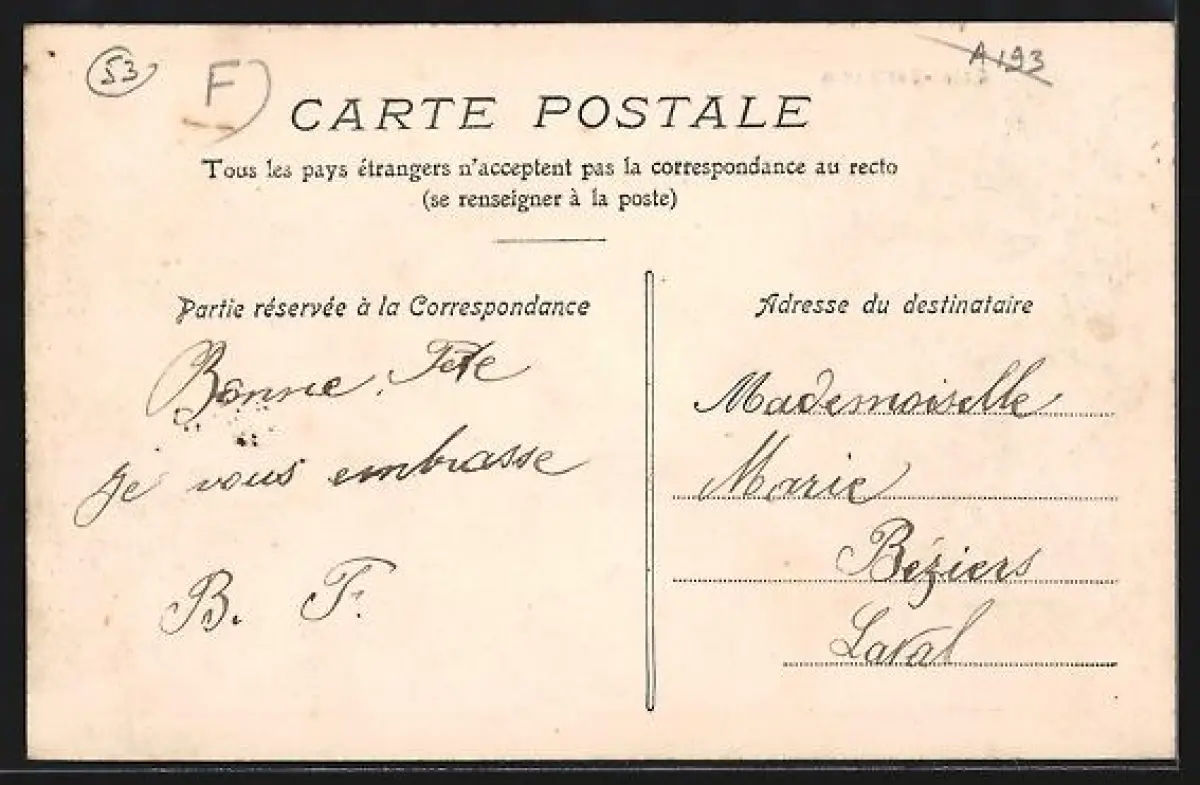 53
F
A193
CARTE POSTALE
Tous les pays étrangers n'acceptent pas la correspondance au recto
(se renseigner à la poste)
Partie réservée à la Correspondance
Bonne Fête
je vous embrasse
B. F.
Adresse du destinataire
Mademoiselle
Marie
Béziers
Laval